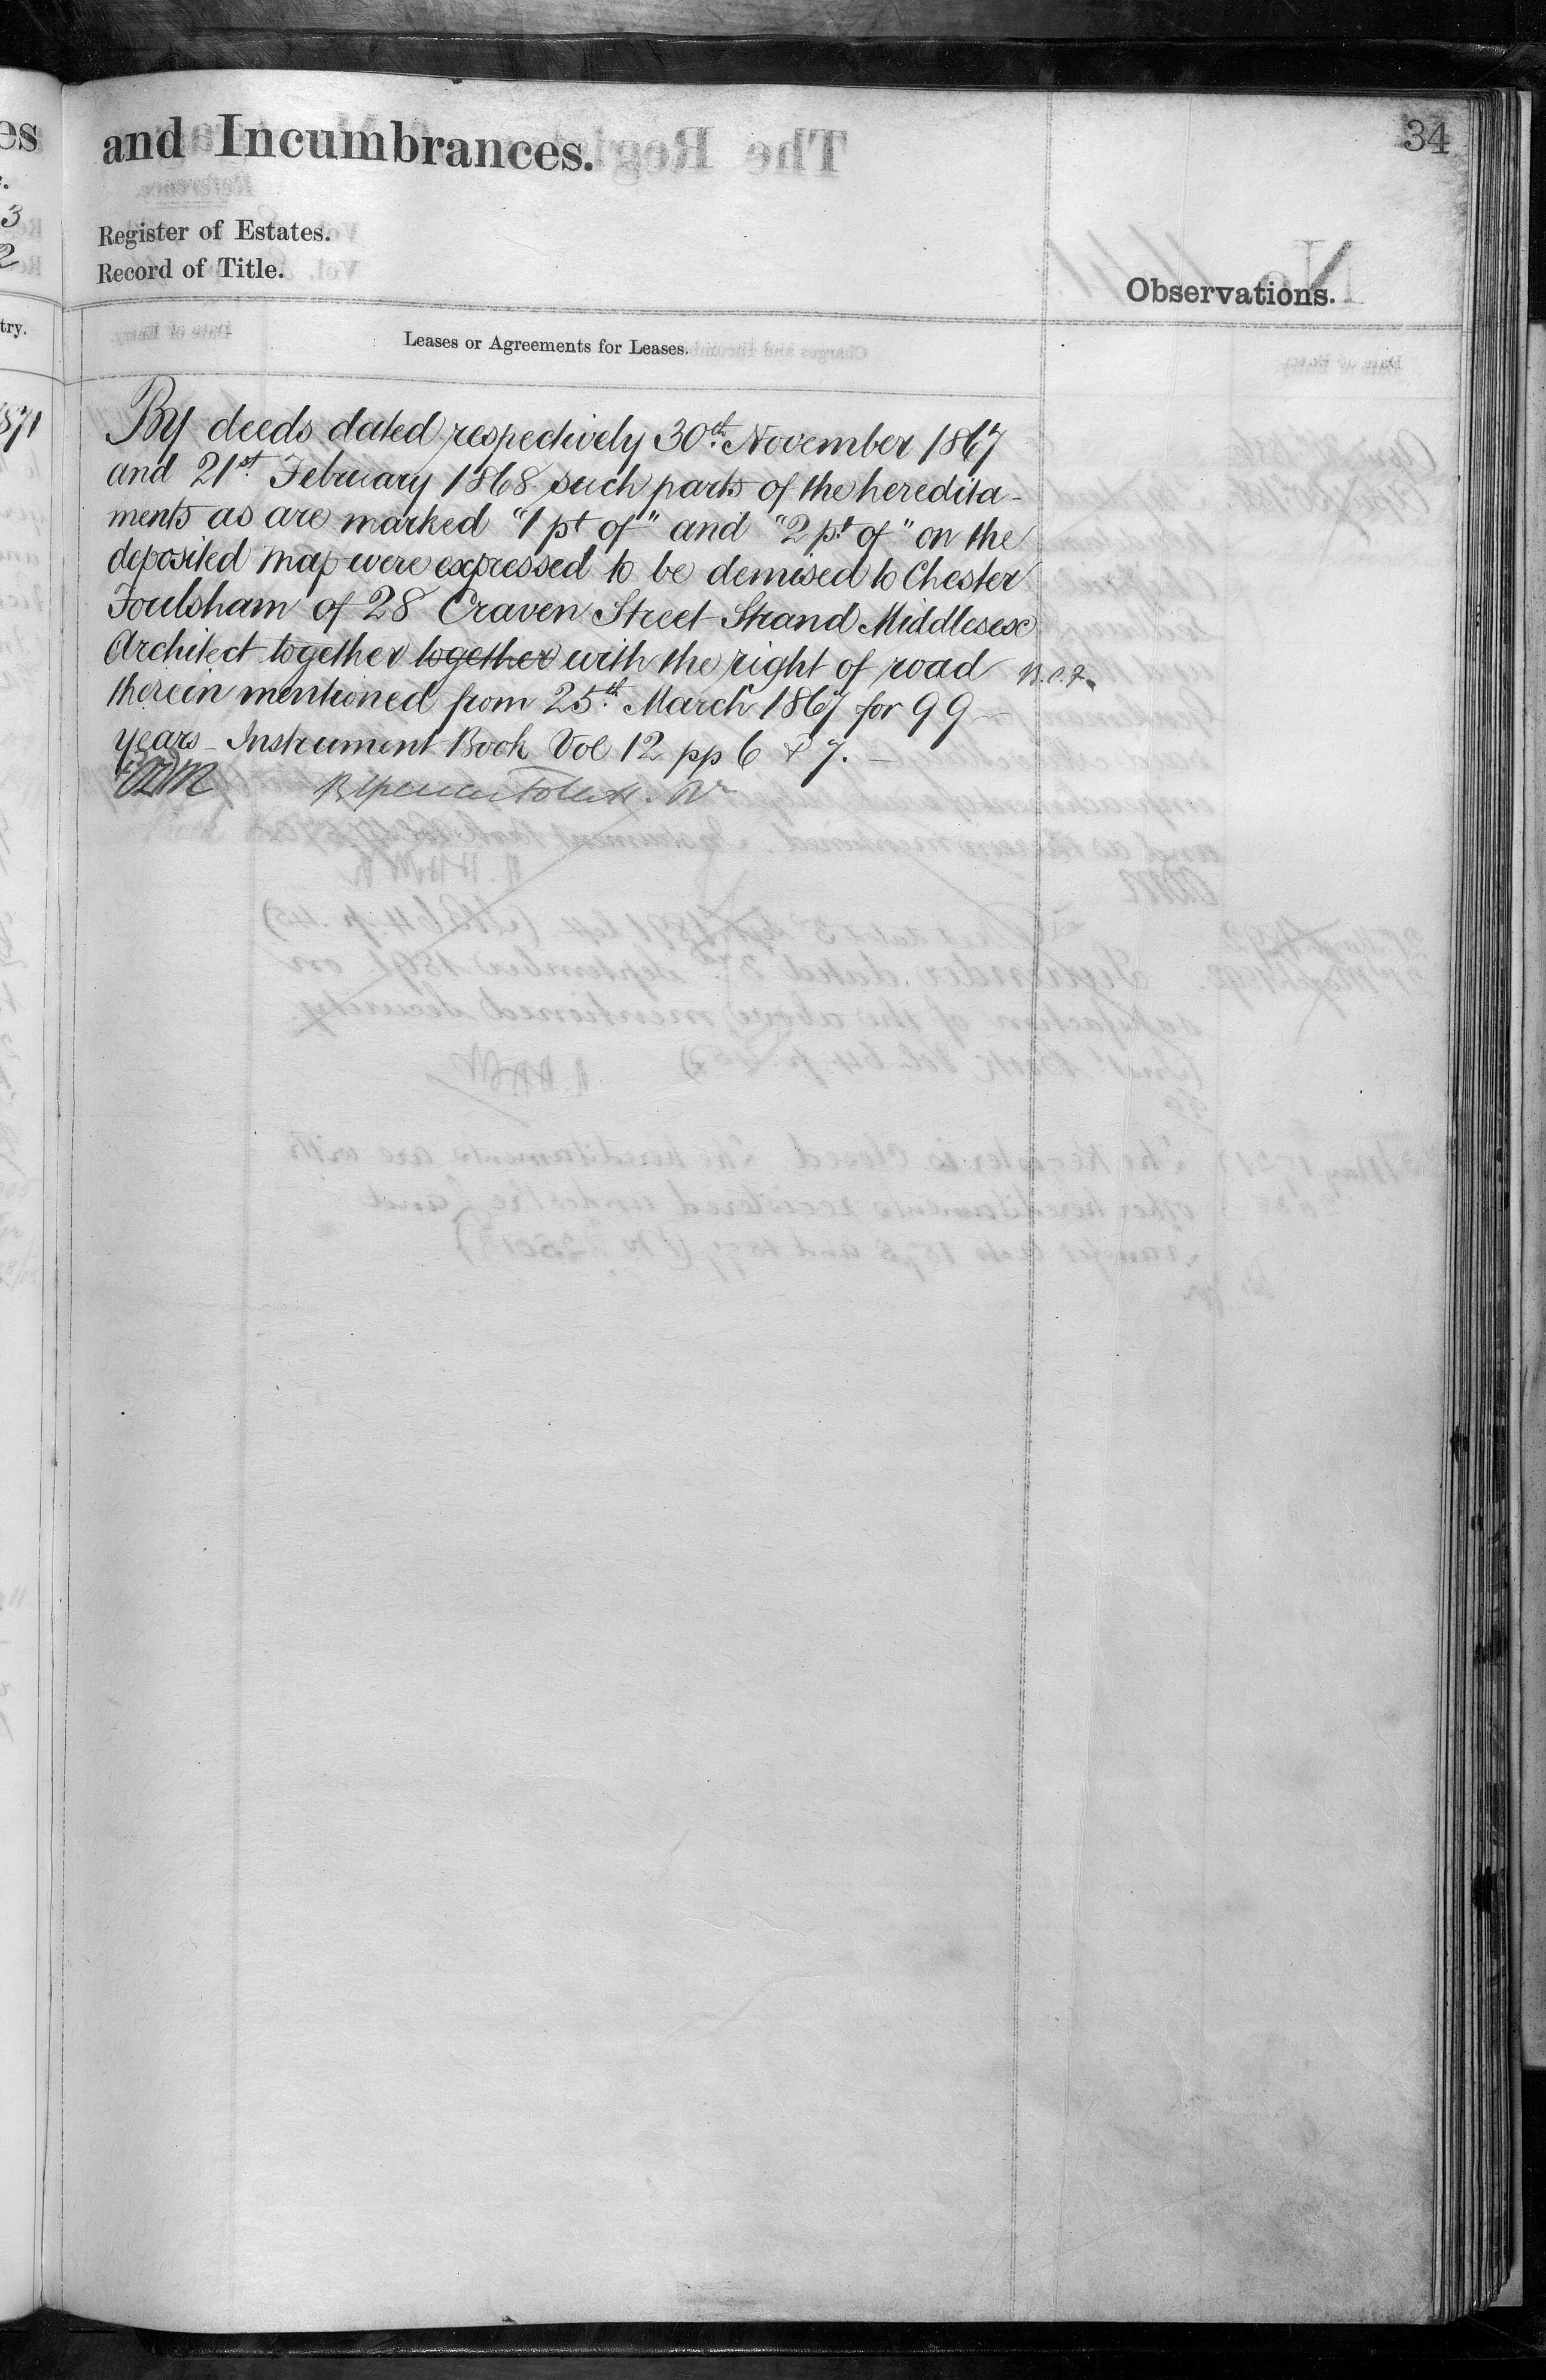 34
and Incumbrances.
Register of Estates.
Record of Title.
Observations.
Leases or Agreements for Leases.
By deeds dated respectively 30th November 1867
and 21st February 1868 such parts of the heredita-
ments as are marked "1 pt of" and "2 pt of" on the
deposited map were expressed to be demised to Chester
Foulsham of 28 Craven Street Strand Middlesex
Architect together together with the right of road
therein mentioned from 25th March 1867 for 99
years - Instrument Book Vol 12 pp 6 & 7. -